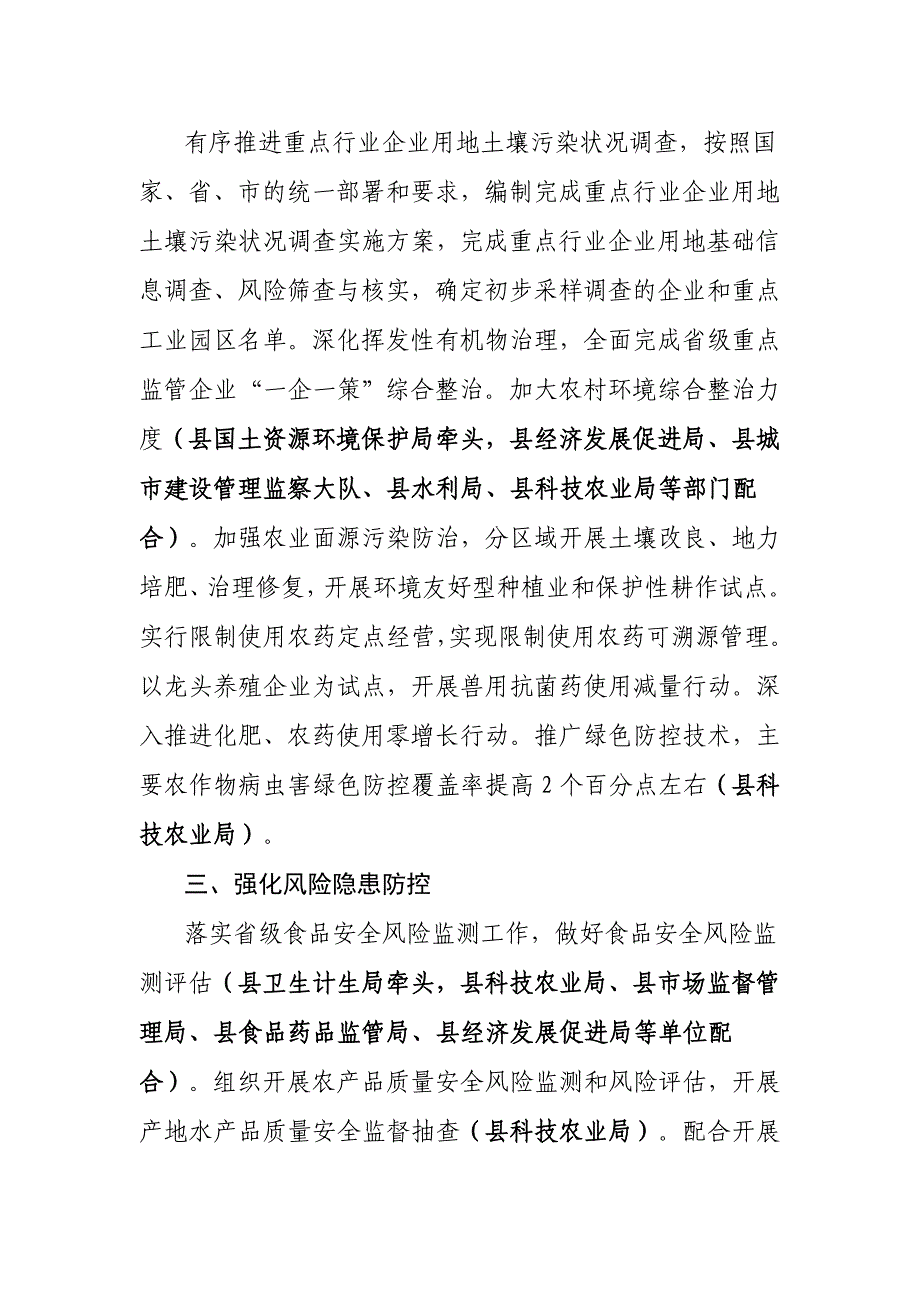 有序推进重点行业企业用地土壤污染状况调查，按照国
家、省、市的统一部署和要求，编制完成重点行业企业用地
土壤污染状况调查实施方案，完成重点行业企业用地基础信
息调查、风险筛查与核实，确定初步采样调查的企业和重点
工业园区名单。深化挥发性有机物治理，全面完成省级重点
监管企业“一企一策”综合整治。加大农村环境综合整治力
度（县国土资源环境保护局牵头，县经济发展促进局、县城
市建设管理监察大队、县水利局、县科技农业局等部门配
合）。加强农业面源污染防治，分区域开展土壤改良、地力
培肥、治理修复，开展环境友好型种植业和保护性耕作试点。
实行限制使用农药定点经营，实现限制使用农药可溯源管理。
以龙头养殖企业为试点，开展兽用抗菌药使用减量行动。深
入推进化肥、农药使用零增长行动。推广绿色防控技术，主
要农作物病虫害绿色防控覆盖率提高 2 个百分点左右（县科
技农业局）。
三、强化风险隐患防控
落实省级食品安全风险监测工作，做好食品安全风险监
测评估（县卫生计生局牵头，县科技农业局、县市场监督管
理局、县食品药品监管局、县经济发展促进局等单位配
合）。组织开展农产品质量安全风险监测和风险评估，开展
产地水产品质量安全监督抽查（县科技农业局）。配合开展